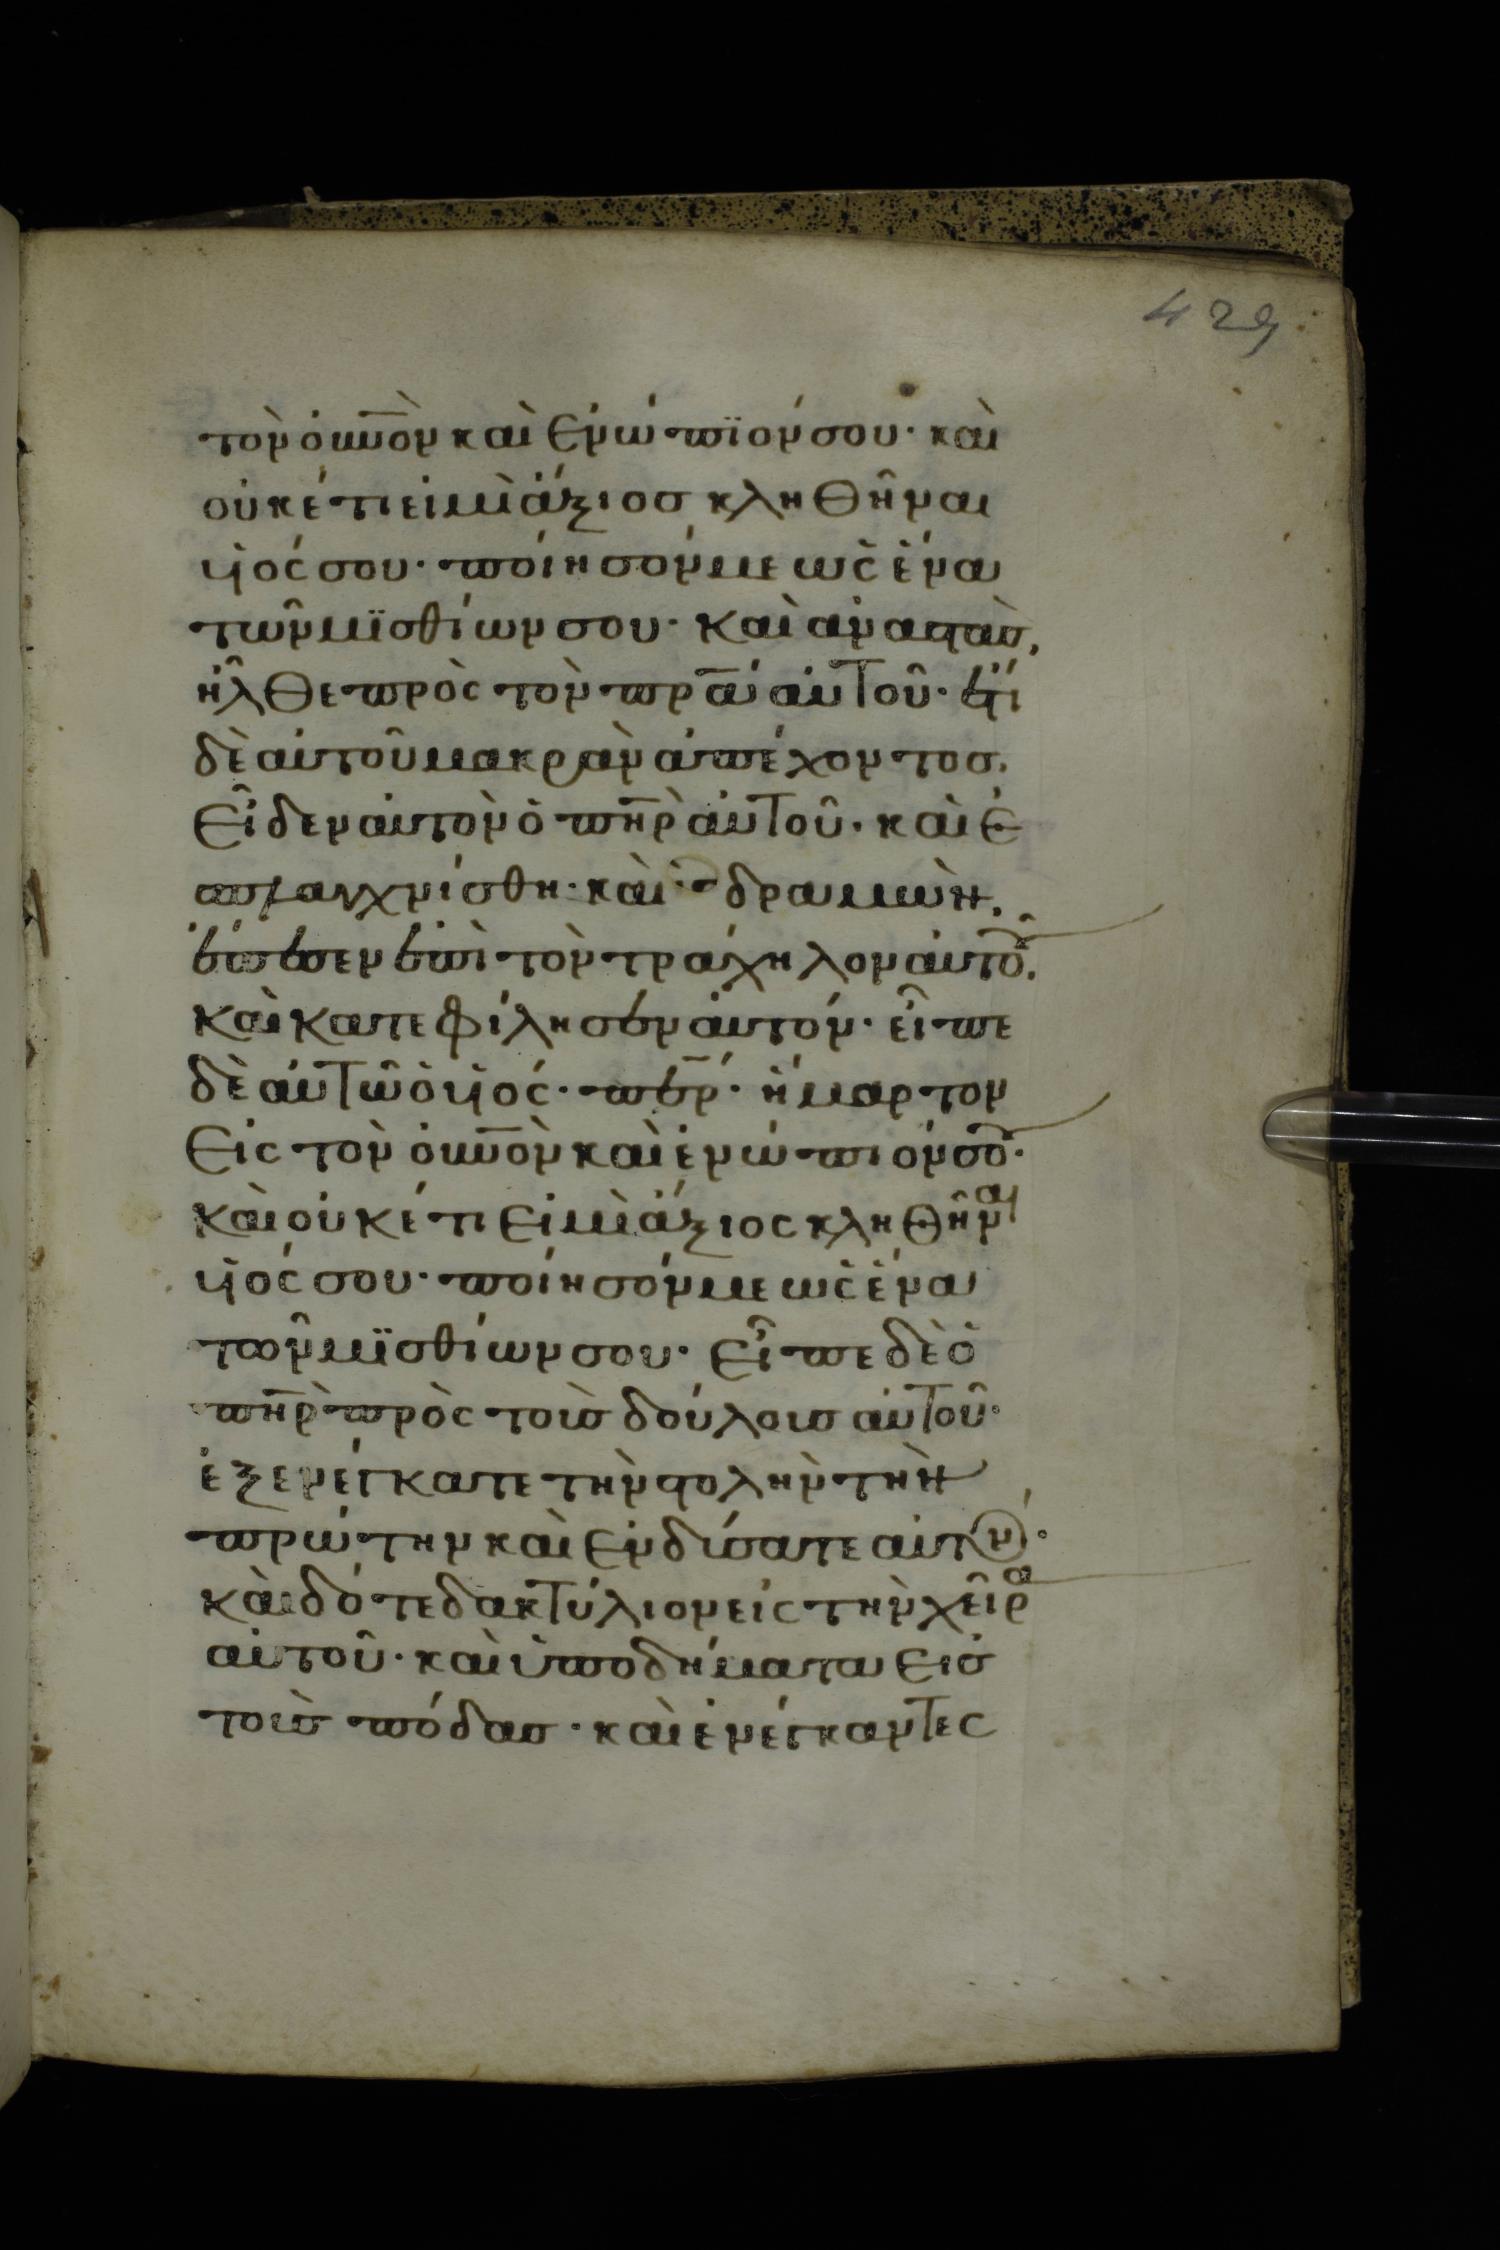 429
τὸν ο̅υ̅νὸν καὶ ἐνώπϊόν σου· καὶ
οὐκέτι εἰμὶ ἄξιοσ κληθῆναι
υἱός σου· ποίησόν με ὡς ἕνα
τῶν μϊσθίων σου· καὶ ἀναστὰσ,
ἦλθε πρὸς τὸν πρ̅α αὐτοῦ· ἔτι
δὲ αὐτοῦ μακρὰν ἀπέχοντοσ,
εἶδεν αὐτὸν ὁ πη̅ρ αὐτοῦ· καὶ ἐ
σπλαγχνίσθη· καὶ δραμὼν,
ἐπέπεσεν ἐπὶ τὸν τράχηλον αὐτοῦ,
καὶ κατεφίλησεν αὐτόν· εἶπε
δὲ αὐτῶ ὁ υἱός· πε̅ρ· ἥμαρτον
εἰς τὸν ο̅υ̅νὸν καὶ ἐνώπιόν σου·
καὶ οὐκέτι εἰμὶ ἄξιος κληθῆναι
υἱός σου· ποίησόν με ὡς ἕνα
τῶν μϊσθίων σου· εἶπε δὲ ὁ
πη̅ρ πρὸς τοὺσ δούλουσ αὐτοῦ·
ἐξενέγκατε τὴν στολὴν τὴν
πρώτην καὶ ἐνδύσατε αὐτόν·
καὶ δότε δακτύλιον εἰς τὴν χεῖρα
αὐτοῦ· καὶ ὑποδήματα εἰσ
τοὺσ πόδασ· καὶ ἐνέγκαντες